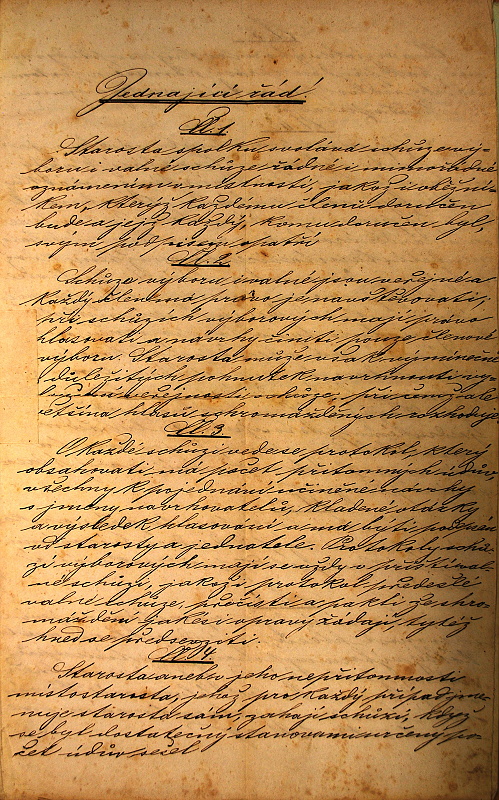 Jednající řád!
§. 1
Starosta spolku svolává schůze vý-
boru i valné schůze řádné i mimořádné
oznámením v místnosti, jakož i oběžní-
kem, kterýž každému členu doručen
bude a jejž každý, komu doručen byl,
svým podpisem opatří
§. 2
Schůze výboru i valné jsou veřejné a
každý člen má právo je navštěvovati;
při schůzích výborových mají právo
hlasovati a návrhy činiti pouze členové
výboru. Starosta může však výmineč
důležitých pohnutek navrhnouti vy
veřejnosti schůze, při čemž ale
většina hlasů shromážděných rozhoduje.
§. 3
O každé schůzi vede se protokol, který
obsahovati má počet přítomných údův
všechny k pojednání učiněné návrhy
s jmény navrhovatelů, kladené otázky
a výsledek hlasování a má býti podepsán
od starosty a jednatele. Protokoly schů-
zí výborových mají se vždy v příští val-
né schůzi, jakož i protokol předešlé
valné schůze, přečísti a pakli že shro-
máždění jakési opravy žádají, tytéž
hned se předsevzíti.
§ 4
Starosta aneb v jeho nepřítomnosti
místostarosta, jehož pro každý případ jme-
nuje starosta sám, zahájí schůzi, když
se byl dostatečný stanovami určený po-
čet údův sešel